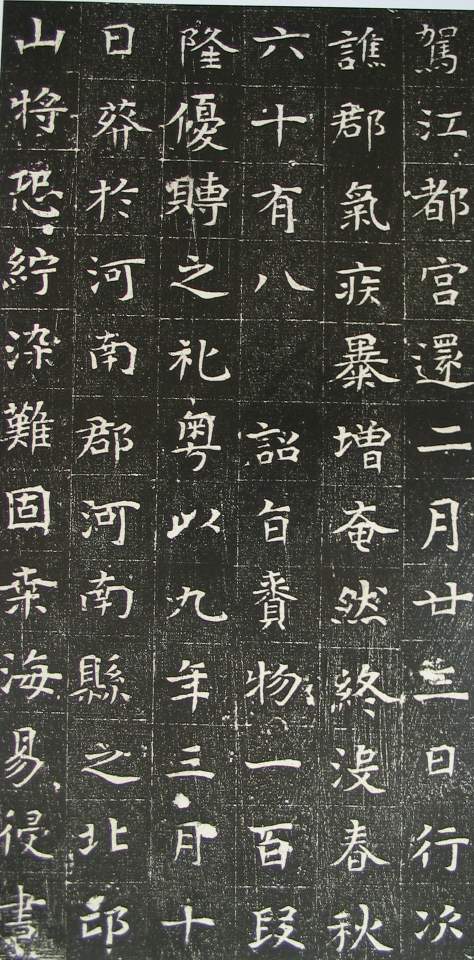 駕江都宮還二月廿三日行次
譙郡氣疾暴增奄然終沒春秋
六十有八　詔旨賚物一百段
隆優賻之礼粵以九年三月十
日葬於河南郡河南縣之北邙
山將恐紵染難固桒海易侵書